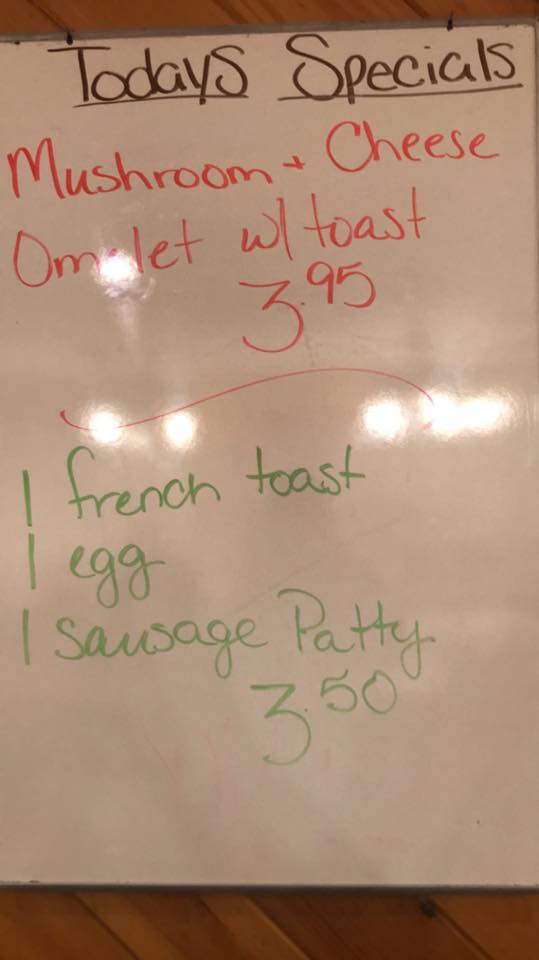 Todays Specials
Mushroom + Cheese
Omelet w/ toast
3.95
1 french toast
1 egg
1 sausage Patty
3.50